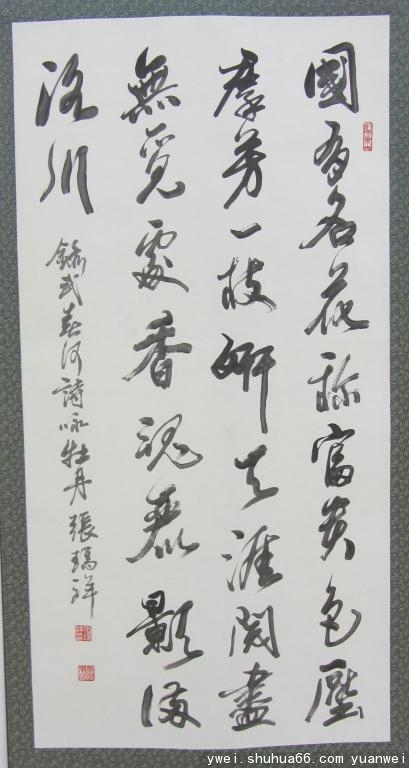 國有名花称富貴色壓
羣芳一枝妍天涯閱盡
無覓處香魂麗影滿
洛川
錄武河詩咏牡丹張瑞祥
ywei.shuhua66.com yuanwei